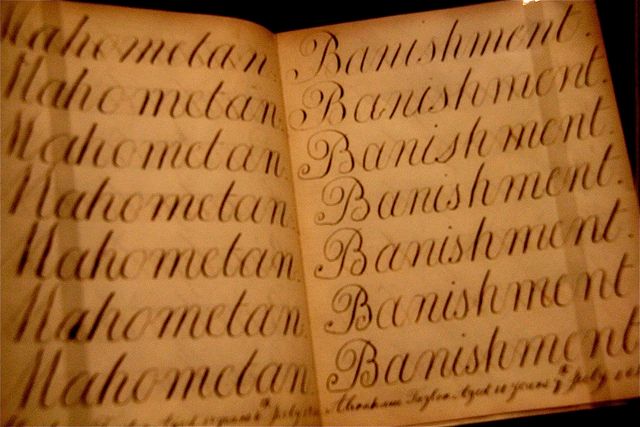 Mahometan.
Mahometan.
Mahometan.
Mahometan.
Mahometan.
Mahometan.
Mahometan.
Aged 10 years 6th July
Banishment.
Banishment.
Banishment.
Banishment.
Banishment.
Banishment.
Banishment.
Abraham Taylor Aged 10 years 7th July